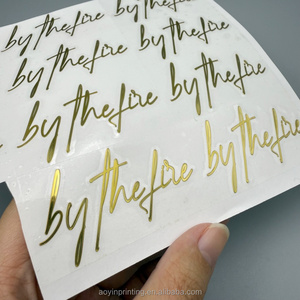 by the fire by the fire
by the fire by the fire
by the fire by the fire
by the fire by the fire
aoyinprinting.en.alibaba.com